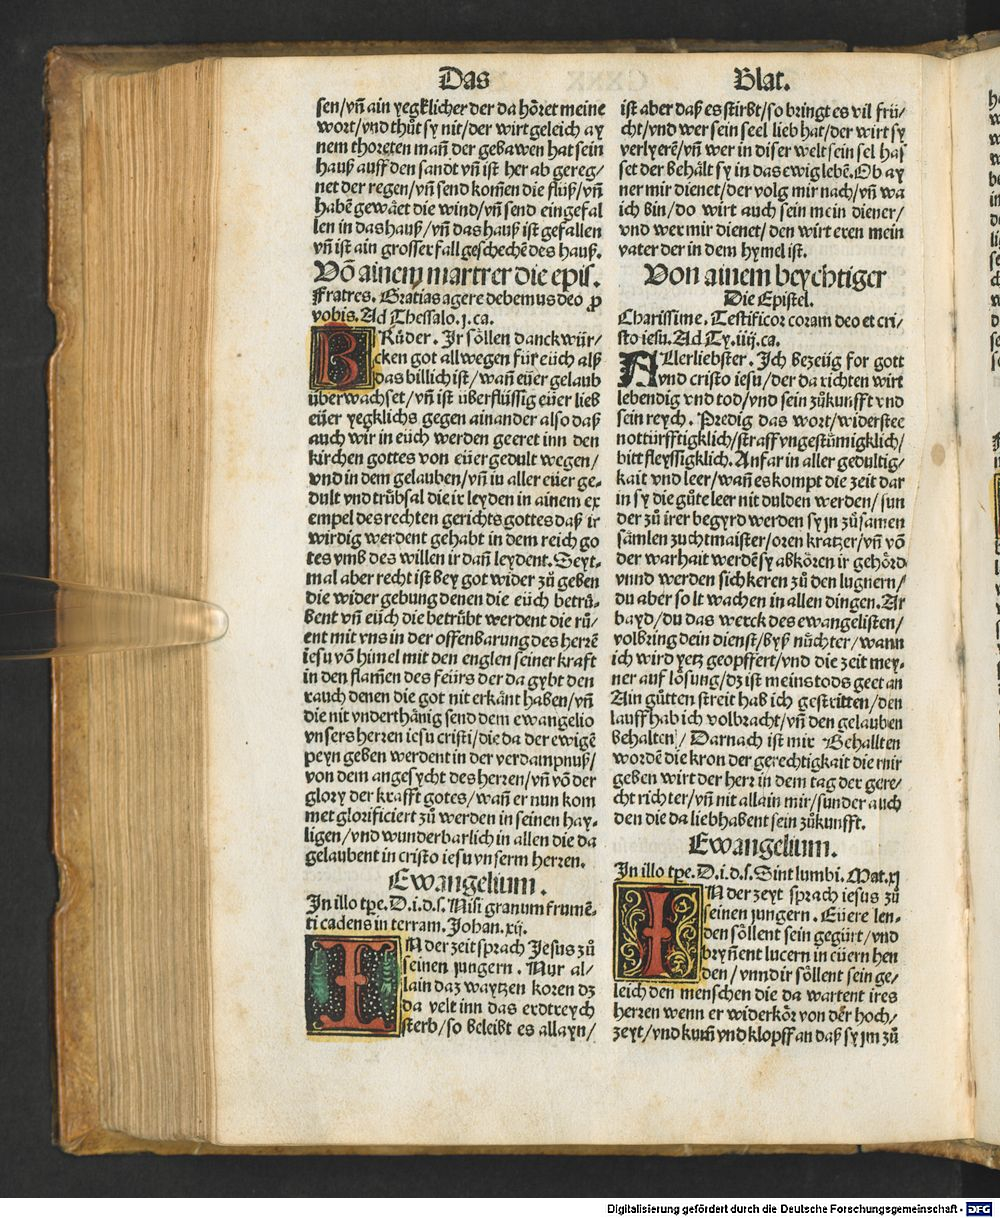 Das
Blat.
sen/vñ ain yegklicher der da höret meine
wort/vnd thůt sy nit/der wirt geleich ay
nem thoreten mañ der gebawen hat sein
hauß auff den sandt vñ ist her ab gereg/
net der regen/vñ send komen die flüß/vñ
habē gewäet die wind/vñ send eingefal
len in das hauß/vñ das hauß ist gefallen
vñ ist ain grosser fall geschechē des hauß.
Võ ainem martrer die epis.
Fratres. Gratias agere debemus deo ꝓ
vobis. Ad Thessalo.j.ca.
BRůder. Ir söllen danckwür/
cken got allwegen für eüch alß
das billich ist/wañ eüer gelaub
überwachset/vñ ist überflüssig eüer lieb
eüer yegklichs gegen ainander also daß
auch wir in eüch werden geeret inn den
kirchen gottes von eüer gedult wegen/
vnd in dem gelauben/vñ in aller eüer ge/
dult vnd trůbsal die ir leyden in ainem ex
empel des rechten gerichts gottes daß ir
wirdig werdent gehabt in dem reich go
tes vmb des willen ir dañ leydent. Seyt/
mal aber recht ist bey got wider zů geben
die wider gebung denen die eüch betrů/
bent vñ eüch die betrůbt werdent die rů/
ent mit vns in der offenbarung des herrē
iesu võ himel mit den englen seiner kraft
in den flamen des feürs der da gybt den
rauch denen die got nit erkänt haben/vñ
die nit vnderthänig send dem ewangelio
vnsers herren iesu cristi/die da der ewigē
peyn geben werdent in der verdampnuß/
von dem angesycht des herren/vñ võ der
glory der krafft gotes/wañ er nun kom
met glorificiert zů werden in seinen hay/
ligen/vnd wunderbarlich in allen die da
gelaubent in cristo iesu vnserm herren.
Ewangelium.
In illo tꝑe. D.i.d.s. Nisi granum frumē/
ti cadens in terram. Johan.xij.
IN der zeit sprach Jesus zů
seinen jungern. Nur al/
lain daz waytzen koren dz
da velt inn das erdtreych
sterb/so beleibt es allayn/
ist aber daß es stirbt/so bringt es vil frü/
cht/vnd wer sein seel lieb hat/der wirt sy
verlyerē/vñ wer in diser welt sein sel has
set der behält sy in das ewig lebē. Ob ay
ner mir dienet/der volg mir nach/vñ wa
ich bin/do wirt auch sein mein diener/
vnd wer mir dienet/den wirt eren mein
vater der in dem hymel ist.
Von ainem beychtiger
Die Epistel.
Charissime. Testificor coram deo et cri/
sto iesu. Ad Ty.iiij.ca.
ALlerliebster. Ich bezeüg for gott
vnd cristo iesu/der da richten wirt
lebendig vnd tod/vnd sein zůkunfft vnd
sein reych. Predig das wort/widerstee
notturfftigklich/straff vngestůmigklich/
bitt fleyssigklich. Anfar in aller gedultig/
kait vnd leer/wañ es kompt die zeit dar
in sy die gůte leer nit dulden werden/sun
der zů irer begyrd werden sy jn zůsamen
samlen zuchtmaister/oren kratzer/vñ võ
der warhait werdē sy abkören ir gehörd
vnnd werden sich keren zů den lugnern/
du aber solt wachen in allen dingen. Ar
bayd/du das werck des ewangelisten/
volbring dein dienst/byß nůchter/wann
ich wird yetz geopffert/vnd die zeit mey/
ner auf lösung/dz ist meins tods geet an
Ain gůtten streit hab ich gestritten/den
lauff hab ich volbracht/vñ den gelauben
behalten/ Darnach ist mir Behallten
wordē die kron der gerechtigkait die mir
geben wirt der herr in dem tag der gere/
cht richter/vñ nit allain mir/sunder auch
den die da liebhabent sein zůkunfft.
Ewangelium.
In illo tꝑe. D.i.d.s. Sint lumbi. Mat.xj
IN der zeyt sprach iesus zů
seinen jungern. Eüere len/
den söllent sein gegürt/vnd
bryñent lucern in eüern hen
den/vnnd ir söllent sein ge/
leich den menschen die da wartent ires
herren wenn er widerkör von der hoch/
zeyt/vnd kum vnd klopff an daß sy jm zů
Digitalisierung gefördert durch die Deutsche Forschungsgemeinschaft - DFG